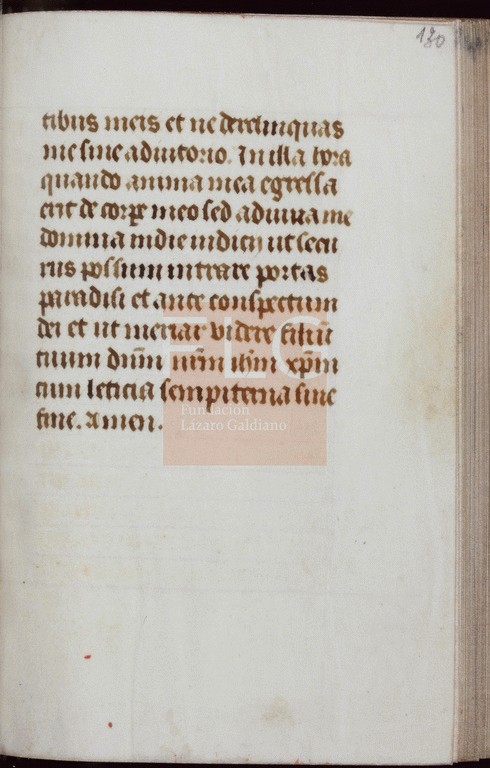 130
tibus meis et ne derelinquas
me sine adiutorio. In illa hora
quando anima mea egressa
erit de corpe meo sed adiuua me
domina in die iudicij ut secu
rus possum intrare portas
paradisi et ante conspectum
dei et ut merear videre filiū
tuum dn̄m nr̄m ihm̄ xp̄m
cum leticia sempiterna sine
fine. Amen.
FLG
Fundación
Lázaro Galdiano